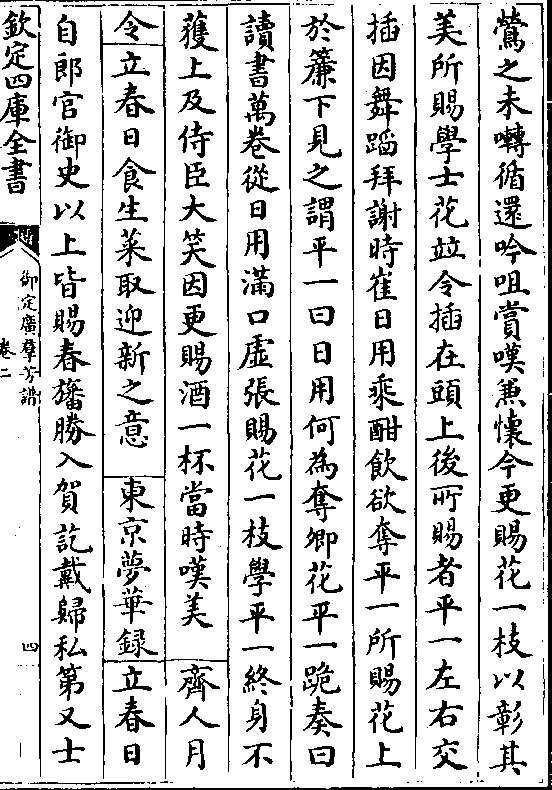 鶯之未囀循還吟咀賞嘆兼懷今更賜花一枝以彰其
美所賜學士花竝令插在頭上後所賜者平一左右交
插因舞蹈拜謝時崔日用乘酣飲欲奪平一所賜花上
於簾下見之謂平一曰日用何為奪卿花平一跪奏曰
讀書萬卷從日用滿口虛張賜花一枝學平一終身不
獲上及侍臣大笑因更賜酒一杯當時嘆美 齊人月
令立春日食生菜取迎新之意 東京夢華録 立春日
自郎官御史以上皆賜春旛勝入賀訖戴歸私第又士
欽定四庫全書
御定廣羣芳譜
卷二
四